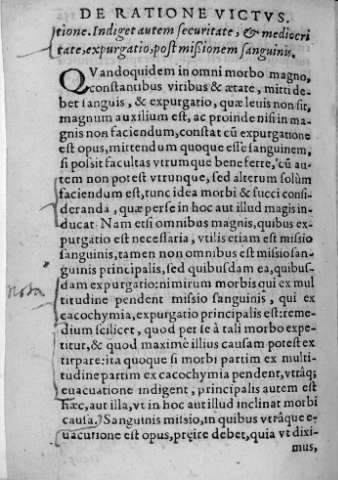 DE RATIONE VICTVS.
tione. Indiget autem securitate, & mediocri
tate, expurgatio, post missionem sanguinis.
QVandoquidem in omni morbo magno,
constantibus viribus & ætate, mitti de-
bet sanguis, & expurgatio, quæ leuis non sit,
magnum auxilium est, ac proinde nisi in ma-
gnis non faciendum, constat cũ expurgatione
est opus, mittendum quoque esse sanguinem,
si possit facultas vtrumque bene ferre, cũ au-
tem non potest vtrunque, sed alterum solùm
faciendum est, tunc idea morbi & succi consi-
deranda, quæ per se in hoc aut illud magis in-
ducat. Nam etsi omnibus magnis, quibus ex-
purgatio est necessaria, vtilis etiam est missio
sanguinis, tamen non omnibus est missio san-
guinis principalis, sed quibusdam ea, quibus-
dam expurgatio: nimirum morbis qui ex mul
titudine pendent missio sanguinis, qui ex
cacochymia, expurgatio principalis est: reme-
dium scilicet, quod per se à tali morbo expe-
titur, & quod maximè illius causam potest ex
tirpare: ita quoque si morbi partim ex multi-
tudine partim ex cacochymia pendent, vtrâq;
euacuatione indigent, principalis autem est
hæc, aut illa, vt in hoc aut illud inclinat morbi
causa. Sanguinis missio, in quibus vtrâque e-
uacuatione est opus, præire debet, quia vt dixi-
mus,
Nota